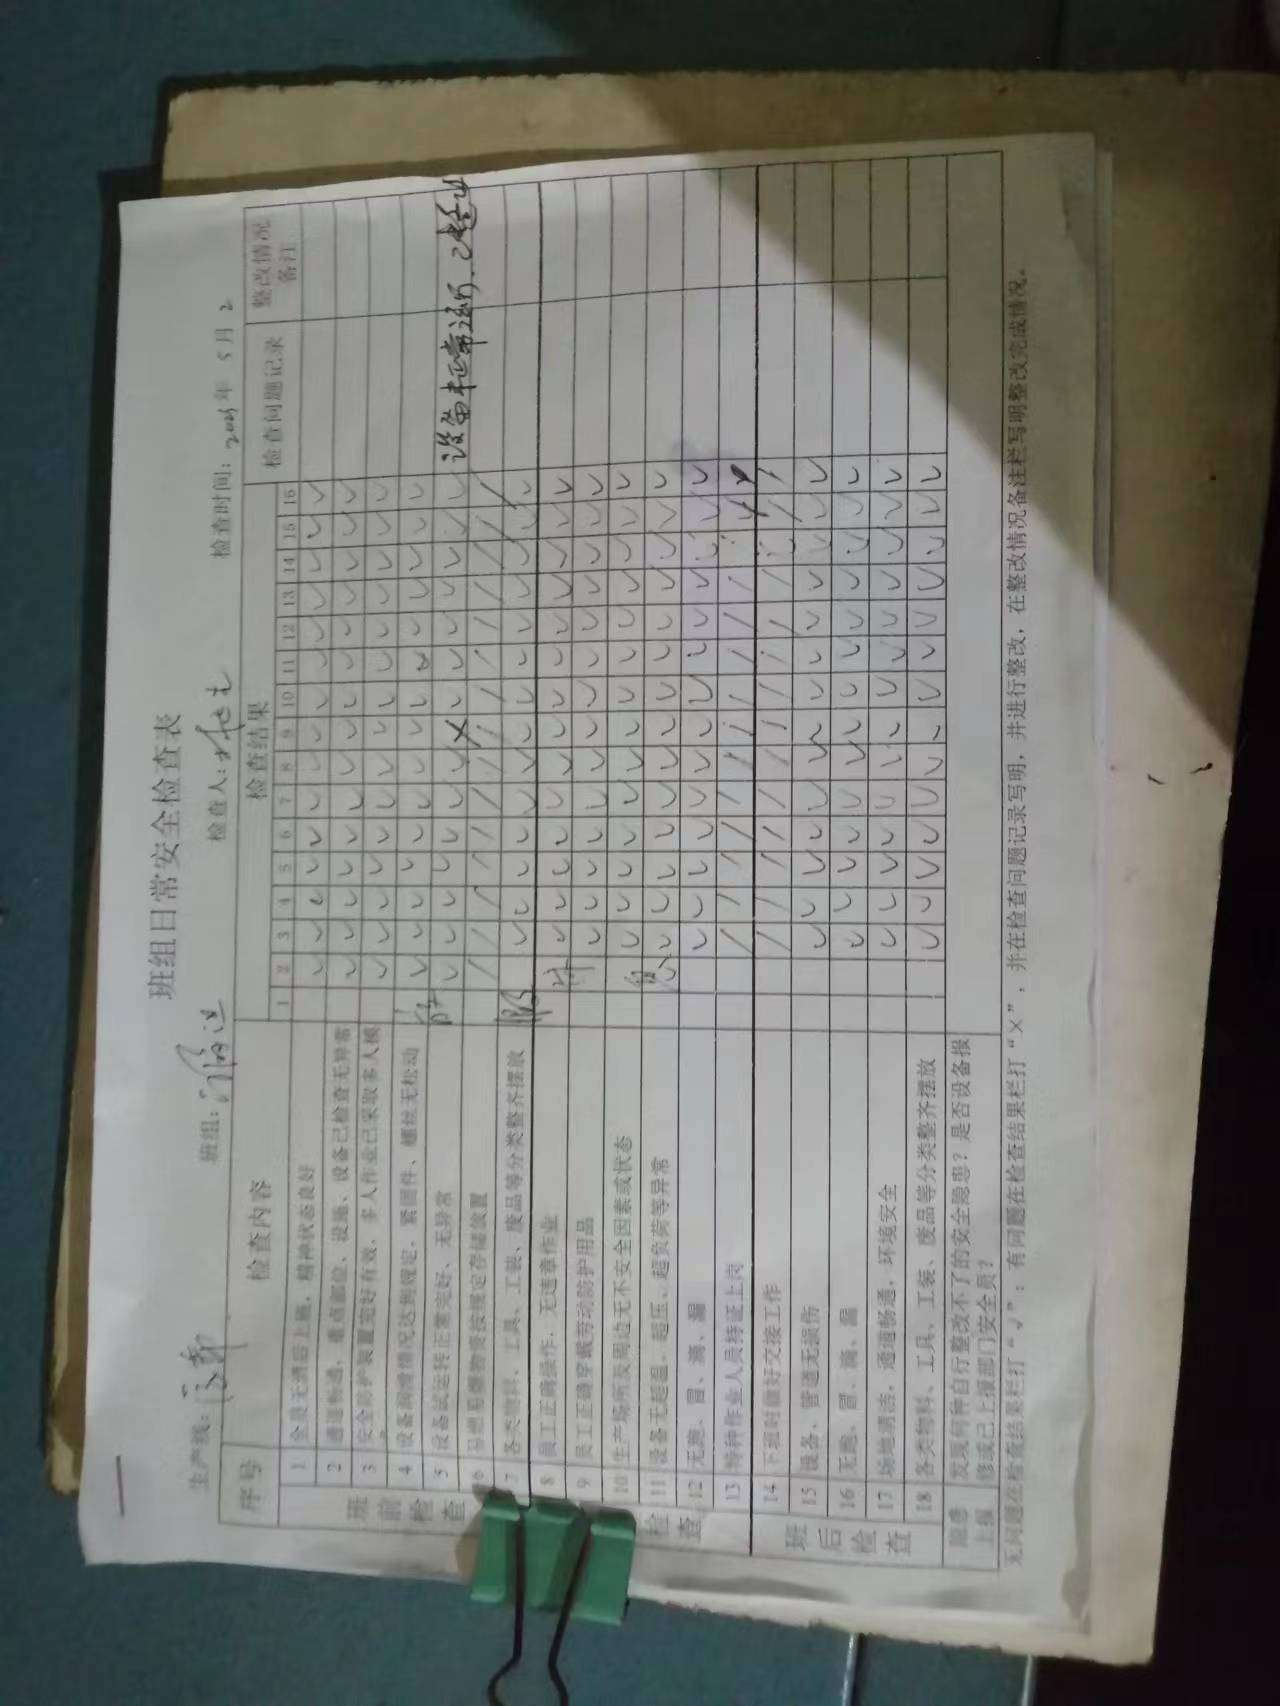 班组日常安全检查表
生产线： 班组： 检查人： 检查时间：2025年 5月 2
序号 检查内容 检查结果 检查问题记录 整改情况备注
1 2 3 4 5 6 7 8 9 10 11 12 13 14 15 16
班前检查
1 全员无酒后上岗，精神状态良好 ✓ ✓ ✓ ✓ ✓ ✓ ✓ ✓ ✓ ✓ ✓ ✓ ✓ ✓ ✓
2 通道畅通，重点部位、设施、设备已检查无异常 ✓ ✓ ✓ ✓ ✓ ✓ ✓ ✓ ✓ ✓ ✓ ✓ ✓ ✓ ✓
3 安全防护装置完好有效，多人作业已采取多人模 ✓ ✓ ✓ ✓ ✓ ✓ ✓ ✓ ✓ ✓ ✓ ✓ ✓ ✓ ✓
4 设备润滑情况达到规定，紧固件、螺丝无松动 ✓ ✓ ✓ ✓ ✓ ✓ ✓ ✓ ✓ ✓ ✓ ✓ ✓ ✓ ✓
5 设备试运转正常完好、无异常 ✓ ✓ ✓ ✓ ✓ ✓ ✓ × ✓ ✓ ✓ ✓ ✓ ✓ ✓ 设备未正常运行，已整改
6 易燃易爆物资按规定存储放置 / / / / / / / / / / / / / / /
7 各类物料、工具、工装、废品等分类整齐摆放 ✓ ✓ ✓ ✓ ✓ ✓ ✓ ✓ ✓ ✓ ✓ ✓ ✓ ✓
检查
8 员工正确操作，无违章作业 ✓ ✓ ✓ ✓ ✓ ✓ ✓ ✓ ✓ ✓ ✓ ✓ ✓ ✓
9 员工正确穿戴劳动防护用品 ✓ ✓ ✓ ✓ ✓ ✓ ✓ ✓ ✓ ✓ ✓ ✓ ✓ ✓
10 生产场所及周边无不安全因素或状态 ✓ ✓ ✓ ✓ ✓ ✓ ✓ ✓ ✓ ✓ ✓ ✓ ✓ ✓
11 设备无超温、超压、超负荷等异常 ✓ ✓ ✓ ✓ ✓ ✓ ✓ ✓ ✓ ✓ ✓ ✓ ✓ ✓
12 无跑、冒、滴、漏 ✓ ✓ ✓ ✓ ✓ ✓ ✓ ✓ ✓ ✓ ✓ ✓ ✓ ✓
13 特种作业人员持证上岗 / / / / / / / / / / /
班后检查
14 下班时做好交接工作 / / / / / / / / / / /
15 设备、管道无损伤 ✓ ✓ ✓ ✓ ✓ ✓ ✓ ✓ ✓ ✓ ✓ ✓ ✓ ✓
16 无跑、冒、滴、漏 ✓ ✓ ✓ ✓ ✓ ✓ ✓ ✓ ✓ ✓ ✓ ✓ ✓ ✓
17 场地清洁，通道畅通，环境安全 ✓ ✓ ✓ ✓ ✓ ✓ ✓ ✓ ✓ ✓ ✓ ✓ ✓ ✓
18 各类物料、工具、工装、废品等分类整齐摆放 ✓ ✓ ✓ ✓ ✓ ✓ ✓ ✓ ✓ ✓ ✓ ✓ ✓ ✓
隐患上报 发现何种自行整改不了的安全隐患？是否设备报
修或已上报部门安全员？
无问题在检查结果栏打“√”；有问题在检查结果栏打“×”，并在检查问题记录写明，并进行整改，在整改情况备注栏写明整改完成情况。